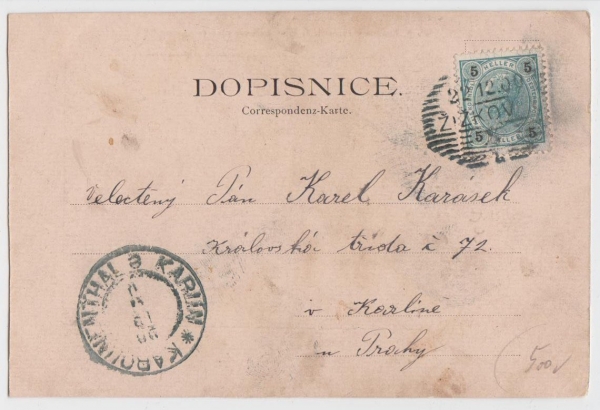 DOPISNICE.
Correspondenz-Karte.
5 HELLER 5
2 12.0
ŽIŽKOV
5 HELLER 5
Velectený Pán Karel Karásek
Královská třída č 72.
v Karlíně
u Prahy
KARLÍN * KAROLINENTHAL 3